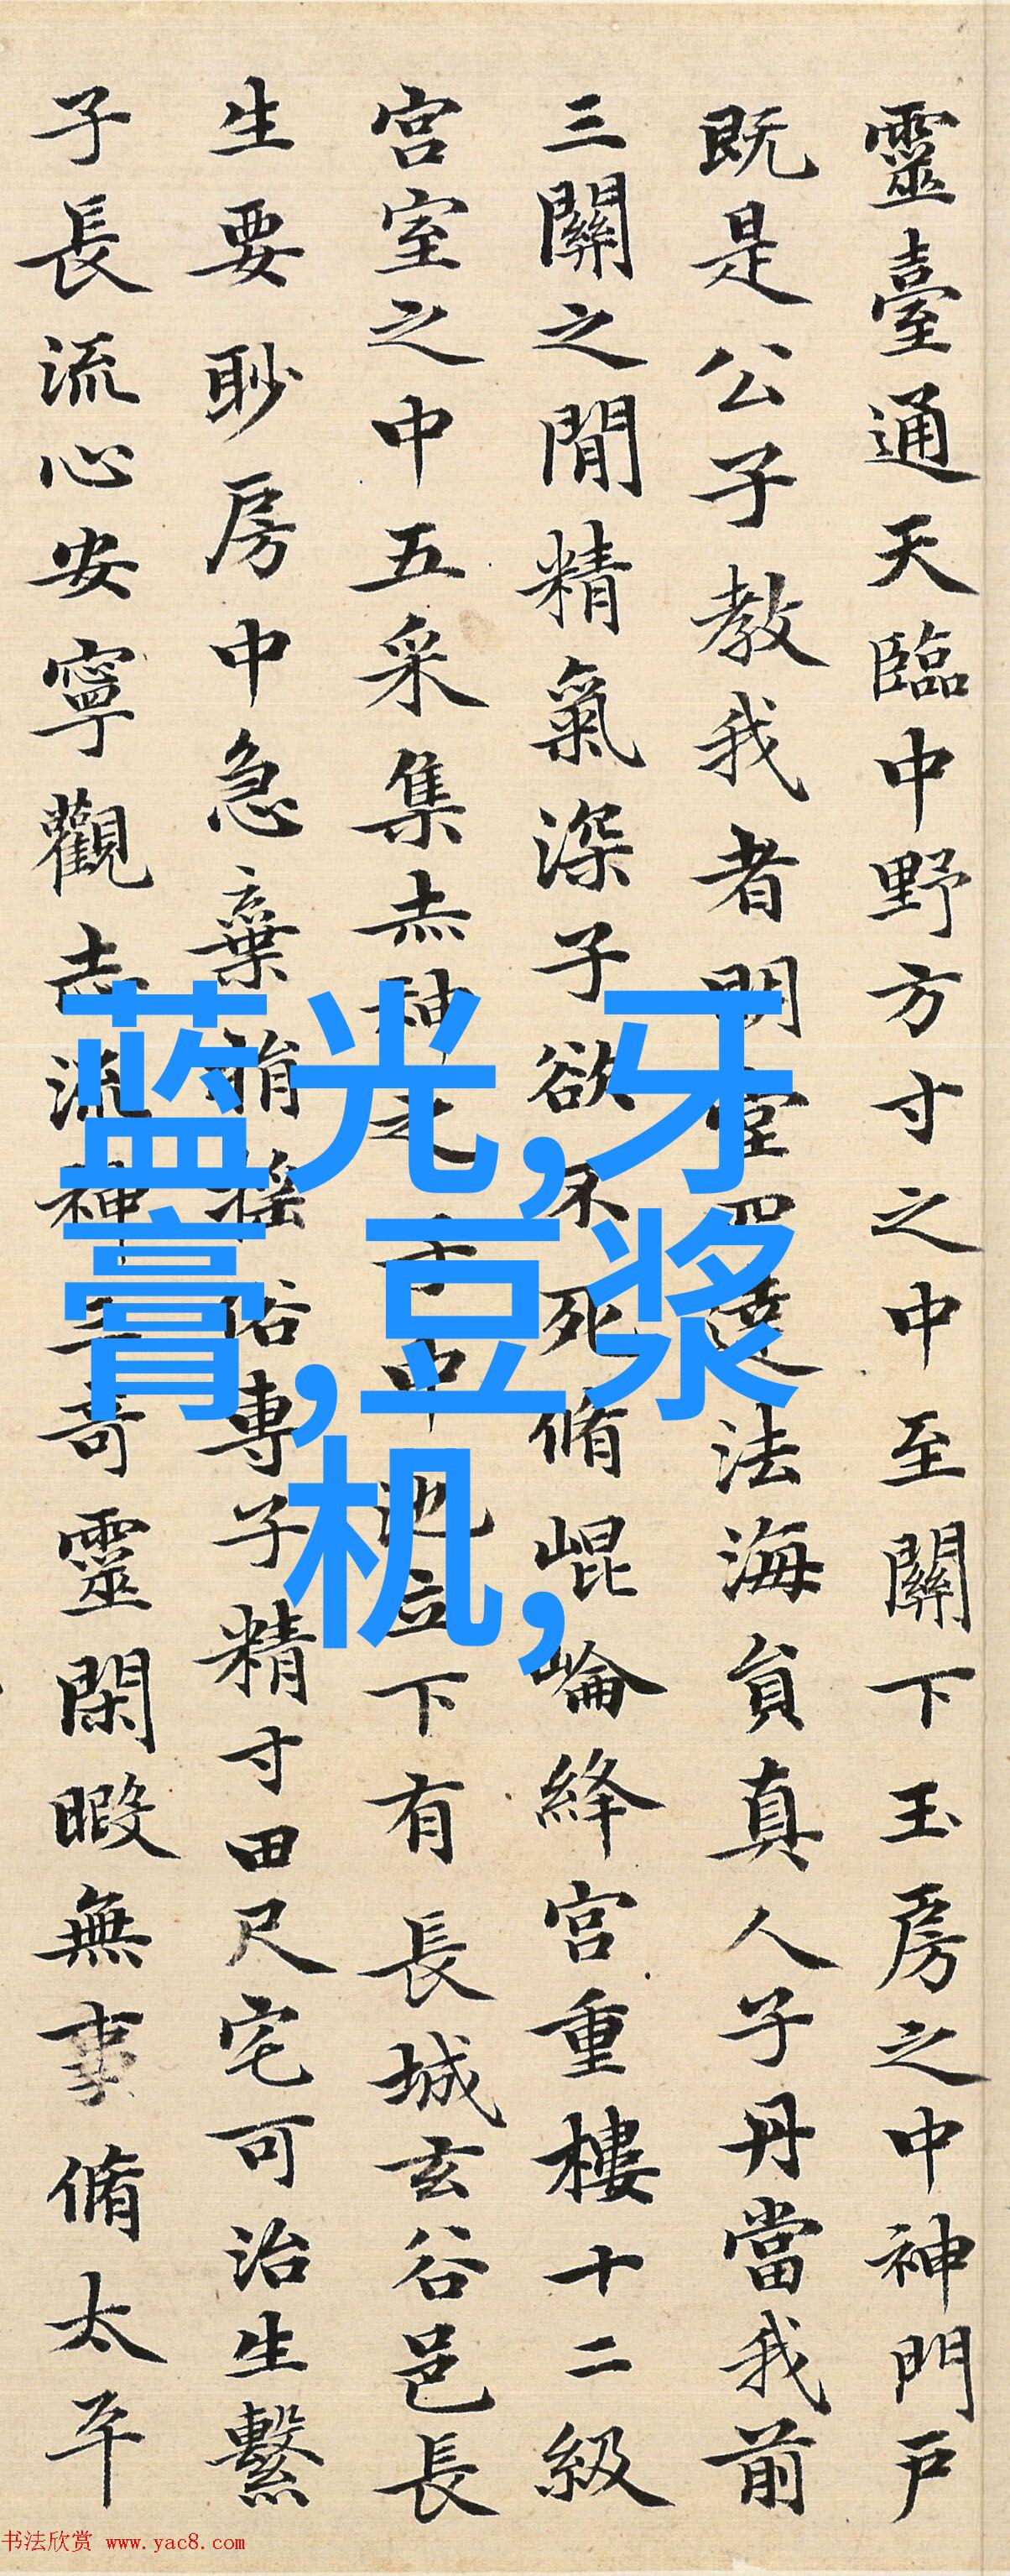 靈臺通天臨中野方寸之中至關下玉房之中神門戶
既是公子教我者明堂四達法海員真人子丹當我前
三關之間精氣深子欲不死脩崐崘絳宮重樓十二級
宮室之中五采集赤神之子中池立下有長城玄谷邑長
生要眇房中急棄捐搖俗專子精寸田尺宅可治生繫
子長流心安寧觀志流神三奇靈閑暇無事脩太平
蓝光,牙
膏,豆浆
机,
书法欣赏 www.yac8.com